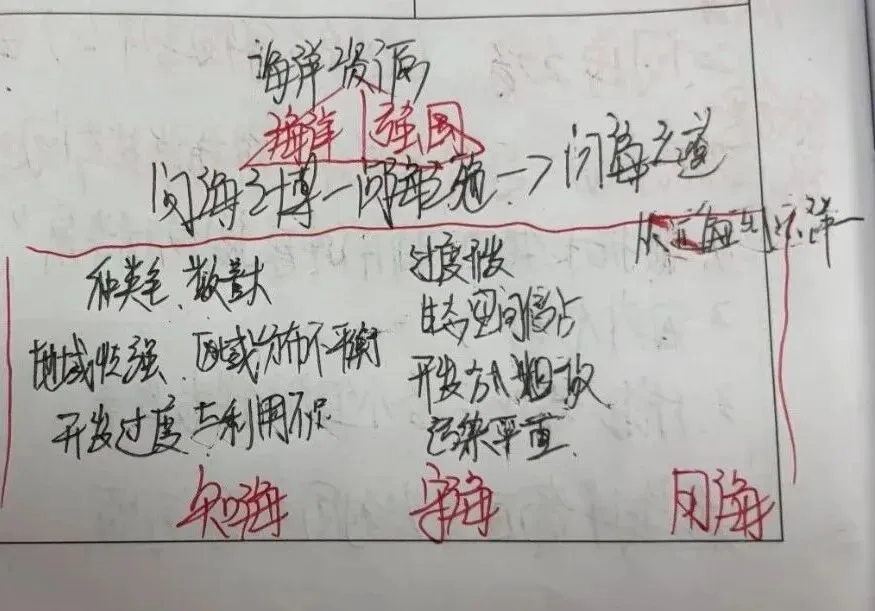 海洋资源
海洋 强国
问海之博—问海之殖—>问海之道
种类全、数量大
过度开发
生态空间侵占
地域性强、区域分布不平衡
开发方式粗放
开发过度与利用不足
污染严重
知海
守海
用海